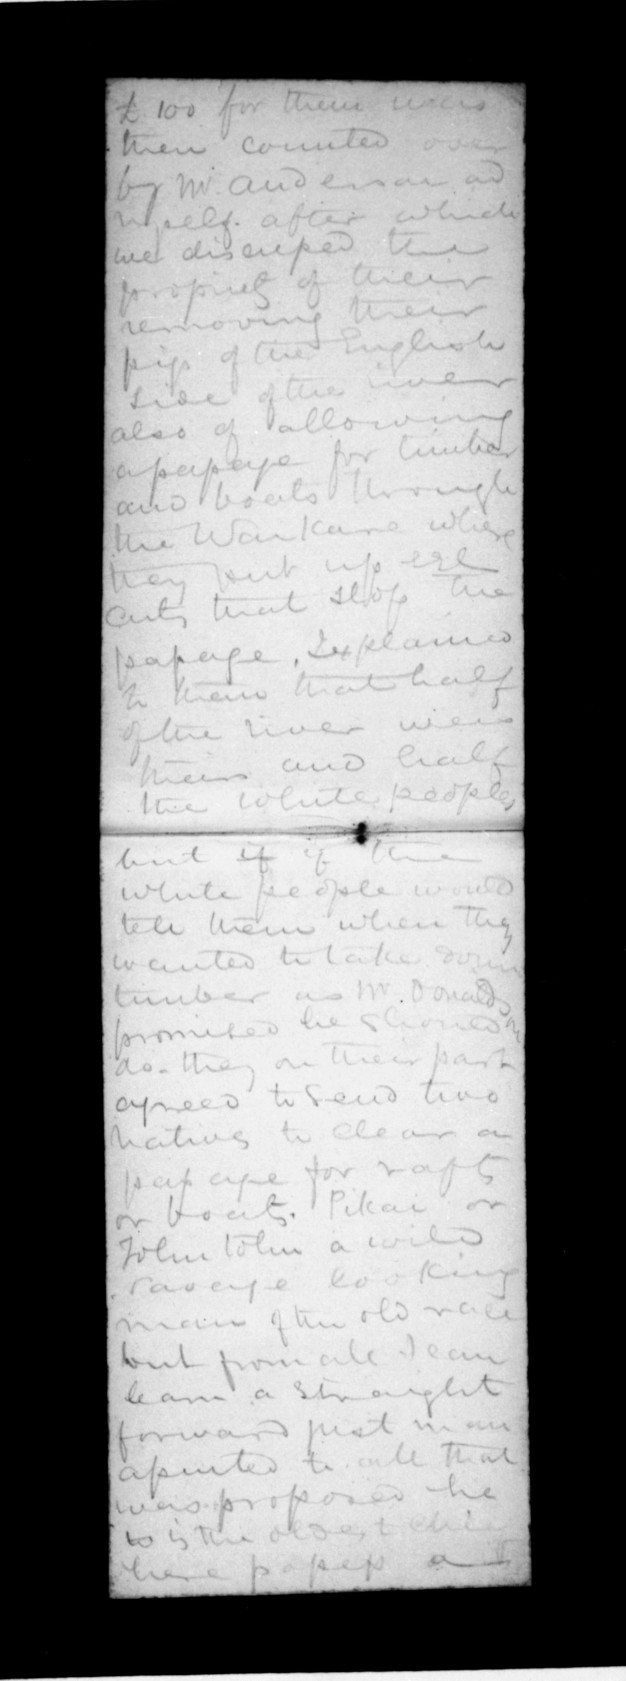 £100 for them was
then counted over
by Mr. Anderson ad
myself. after which
we discused the
propriety of their
removing their
pigs of the English
side of the river
also of allowing
a passage for timber
and boats through
the Waikare where
they put up eel
cuts that stop the
passage, I explained
to them that half
of the river was
theirs and half
the white peoples
but if if the
white people would
tell them when they
wanted to take down
timber as Mr. Donaldson
promised he should
do. they on their part
agreed to send two
natives to clear a
passage for rafts
or boats. Pikai or
John tolu a wild
savage looking
man of the old race
but from all I can
learn a straight
forward just man
asented to all that
was proposed he
is the oldest chief
here posess a